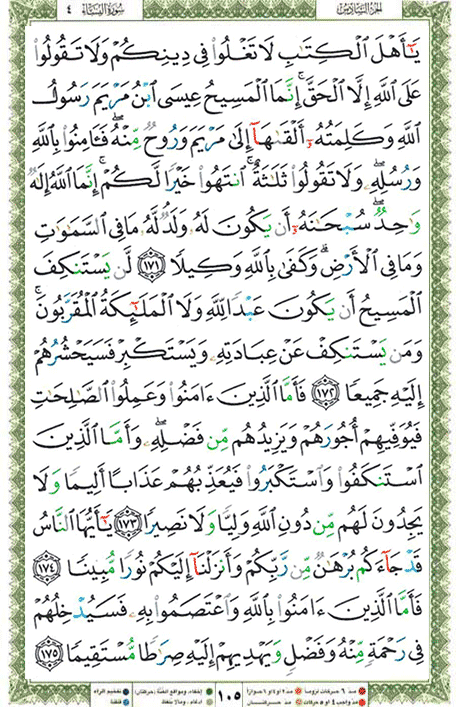 الجزء السادس سورة النساء ٤
يَٰٓأَهْلَ ٱلْكِتَٰبِ لَا تَغْلُوا۟ فِى دِينِكُمْ وَلَا تَقُولُوا۟
عَلَى ٱللَّهِ إِلَّا ٱلْحَقَّ ۚ إِنَّمَا ٱلْمَسِيحُ عِيسَى ٱبْنُ مَرْيَمَ رَسُولُ
ٱللَّهِ وَكَلِمَتُهُۥٓ أَلْقَىٰهَآ إِلَىٰ مَرْيَمَ وَرُوحٌ مِّنْهُ ۖ فَـَٔامِنُوا۟ بِٱللَّهِ
وَرُسُلِهِۦ ۖ وَلَا تَقُولُوا۟ ثَلَٰثَةٌ ۚ ٱنتَهُوا۟ خَيْرًا لَّكُمْ ۚ إِنَّمَا ٱللَّهُ إِلَٰهٌ
وَٰحِدٌ ۖ سُبْحَٰنَهُۥٓ أَن يَكُونَ لَهُۥ وَلَدٌ ۘ لَّهُۥ مَا فِى ٱلسَّمَٰوَٰتِ
وَمَا فِى ٱلْأَرْضِ ۗ وَكَفَىٰ بِٱللَّهِ وَكِيلًا ١٧١ لَّن يَسْتَنكِفَ
ٱلْمَسِيحُ أَن يَكُونَ عَبْدًا لِّلَّهِ وَلَا ٱلْمَلَٰٓئِكَةُ ٱلْمُقَرَّبُونَ ۚ
وَمَن يَسْتَنكِفْ عَنْ عِبَادَتِهِۦ وَيَسْتَكْبِرْ فَسَيَحْشُرُهُمْ
إِلَيْهِ جَمِيعًا ١٧٢ فَأَمَّا ٱلَّذِينَ ءَامَنُوا۟ وَعَمِلُوا۟ ٱلصَّٰلِحَٰتِ
فَيُوَفِّيهِمْ أُجُورَهُمْ وَيَزِيدُهُم مِّن فَضْلِهِۦ ۖ وَأَمَّا ٱلَّذِينَ
ٱسْتَنكَفُوا۟ وَٱسْتَكْبَرُوا۟ فَيُعَذِّبُهُمْ عَذَابًا أَلِيمًا وَلَا
يَجِدُونَ لَهُم مِّن دُونِ ٱللَّهِ وَلِيًّا وَلَا نَصِيرًا ١٧٣ يَٰٓأَيُّهَا ٱلنَّاسُ
قَدْ جَآءَكُم بُرْهَٰنٌ مِّن رَّبِّكُمْ وَأَنزَلْنَآ إِلَيْكُمْ نُورًا مُّبِينًا ١٧٤
فَأَمَّا ٱلَّذِينَ ءَامَنُوا۟ بِٱللَّهِ وَٱعْتَصَمُوا۟ بِهِۦ فَسَيُدْخِلُهُمْ
فِى رَحْمَةٍ مِّنْهُ وَفَضْلٍ وَيَهْدِيهِمْ إِلَيْهِ صِرَٰطًا مُّسْتَقِيمًا ١٧٥
مد ٦ حركات لزوما مد ٢ او ٤ او ٦ جوازا ١٠٥ إخفاء، ومواقع الغنة (حركتان) تفخيم الراء
مد واجب ٤ او ٥ حركات مد حركتان إدغام، وما لا يلفظ قلقلة